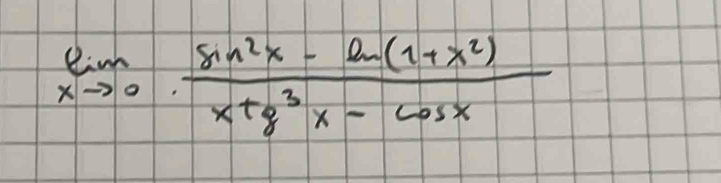 lim x→0 (sin²x - ln(1+x²)) / (x tg³x - cosx)